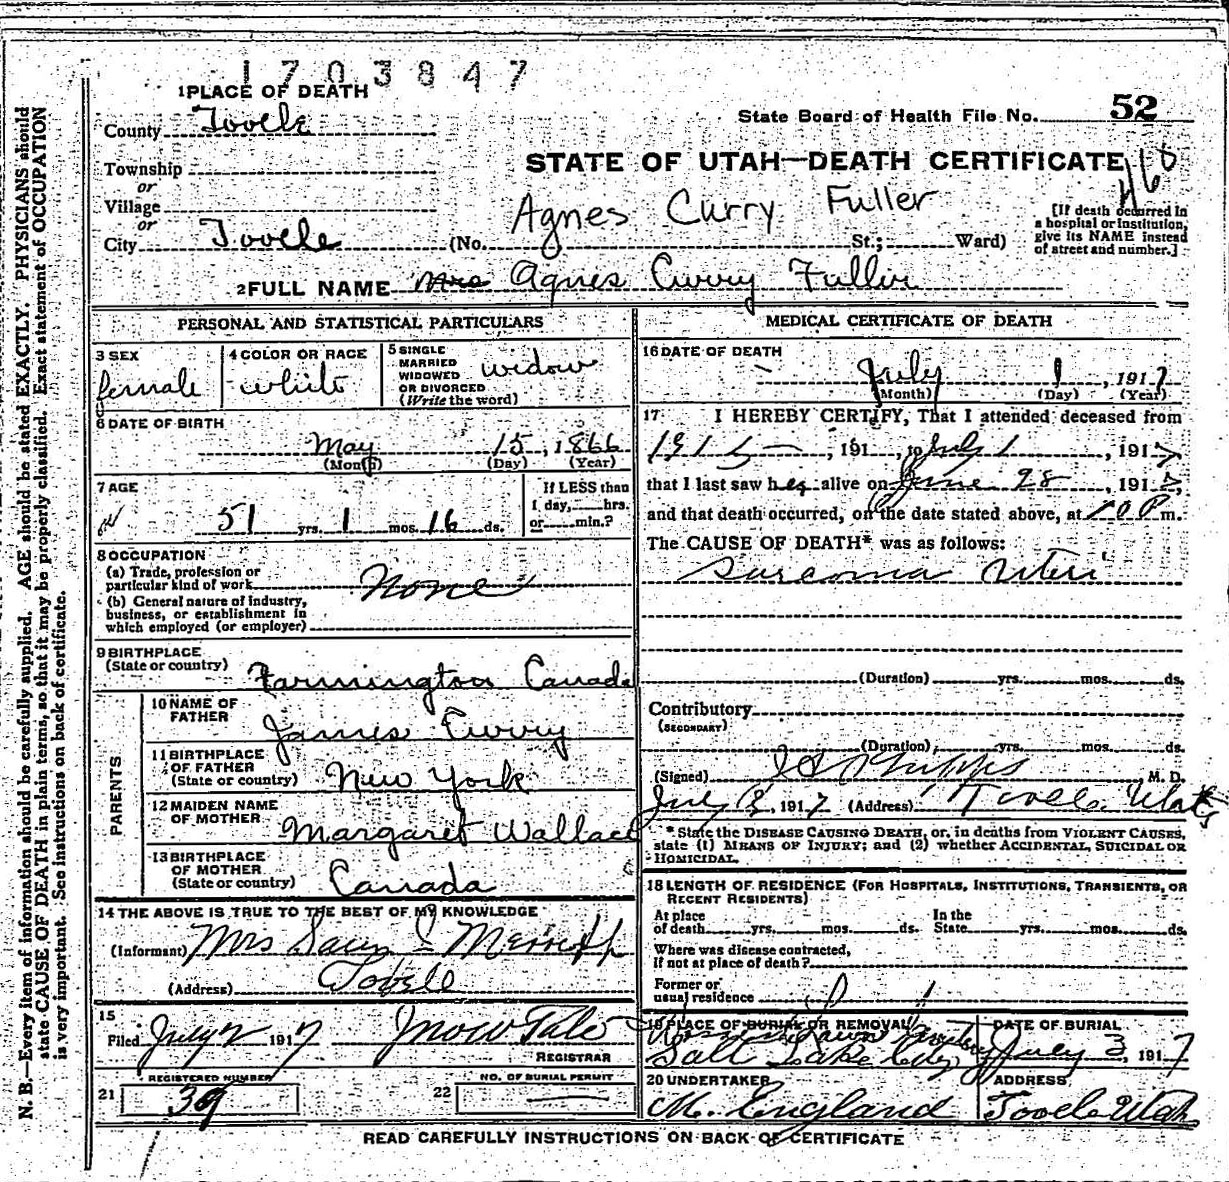 1703847
1 PLACE OF DEATH
County Tooele
State Board of Health File No. 52
Township
or
STATE OF UTAH—DEATH CERTIFICATE
460
Village
or
Agnes Curry Fuller
[If death occurred in a hospital or institution, give its NAME instead of street and number.]
City Tooele (No. St.; Ward)
2 FULL NAME Mrs Agnes Curry Fuller
PERSONAL AND STATISTICAL PARTICULARS
3 SEX female
4 COLOR OR RACE white
5 SINGLE MARRIED WIDOWED OR DIVORCED (Write the word) widow
6 DATE OF BIRTH
May 15, 1866
(Month) (Day) (Year)
7 AGE
51 yrs. 1 mos. 16 ds.
If LESS than 1 day, hrs. or min.?
8 OCCUPATION
(a) Trade, profession or particular kind of work None
(b) General nature of industry, business, or establishment in which employed (or employer)
9 BIRTHPLACE
(State or country) Farmington Canada
PARENTS
10 NAME OF FATHER James Curry
11 BIRTHPLACE OF FATHER (State or country) New York
12 MAIDEN NAME OF MOTHER Margaret Wallace
13 BIRTHPLACE OF MOTHER (State or country) Canada
14 THE ABOVE IS TRUE TO THE BEST OF MY KNOWLEDGE
(Informant) Mrs
(Address) Tooele
15
Filed July 2 1917
REGISTRAR
21 REGISTERED NUMBER 39
22 NO. OF BURIAL PERMIT
MEDICAL CERTIFICATE OF DEATH
16 DATE OF DEATH
July 1, 1917
(Month) (Day) (Year)
17 I HEREBY CERTIFY, That I attended deceased from
1915, 191 , to July 1, 1917,
that I last saw her alive on June 28, 1917,
and that death occurred, on the date stated above, at 100 P m.
The CAUSE OF DEATH* was as follows:
Sarcoma Uteri
(Duration) yrs. mos. ds.
Contributory
(SECONDARY)
(Duration) yrs. mos. ds.
(Signed) Phipps, M. D.
July 2, 1917 (Address) Tooele Utah
*State the DISEASE CAUSING DEATH, or, in deaths from VIOLENT CAUSES, state (1) MEANS OF INJURY; and (2) whether ACCIDENTAL, SUICIDAL OR HOMICIDAL.
18 LENGTH OF RESIDENCE (FOR HOSPITALS, INSTITUTIONS, TRANSIENTS, OR RECENT RESIDENTS)
At place of death yrs. mos. ds. In the State yrs. mos. ds.
Where was disease contracted, If not at place of death?
Former or usual residence
19 PLACE OF BURIAL OR REMOVAL
Salt Lake City
DATE OF BURIAL
July 3, 1917
20 UNDERTAKER
M. England
ADDRESS
Tooele Utah
READ CAREFULLY INSTRUCTIONS ON BACK OF CERTIFICATE
N. B.—Every item of information should be carefully supplied. AGE should be stated EXACTLY. PHYSICIANS should
state CAUSE OF DEATH in plain terms, so that it may be properly classified. Exact statement of OCCUPATION
is very important. See instructions on back of certificate.